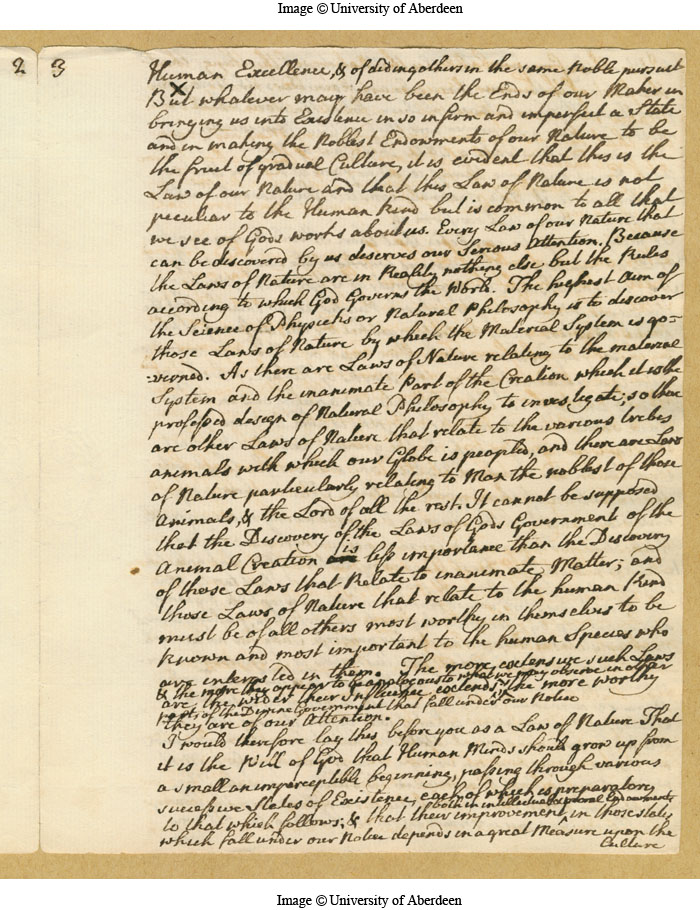 Image © University of Aberdeen
2 3
Human Excellence, & of aiding others in the same Noble pursuit
But whatever may have been the Ends of our Maker in
bringing us into Existence in so infirm and imperfect a State
and in making the Noblest Endowments of our Nature to be
the fruit of gradual Culture, it is evident that this is the
Law of our Nature and that this Law of Nature is not
peculiar to the Human kind but is common to all that
we see of Gods works about us. Every Law of our Nature that
can be discovered by us deserves our Serious Attention. Because
the Laws of Nature are in Reality nothing else but the Rules
according to which God Governs the World. The highest aim of
the Science of Physicks or Natural Philosophy is to discover
those Laws of Nature by which the Material System is go-
-verned. As there are Laws of Nature relating to the material
System and the inanimate Part of the Creation which it is the
professed design of Natural Philosophy to investigate; so there
are other Laws of Nature that relate to the various tribes
animals with which our Globe is peopled, and there are Laws
of Nature particularly relating to Man the noblest of those
Animals, & the Lord of all the rest. It cannot be supposed
that the Discovery of the Laws of Gods Government of the
Animal Creation is less importance than the Discovery
of those Laws that Relate to inanimate Matter; and
those Laws of Nature that relate to the human Kind
must be of all others most worthy in themselves to be
known and most important to the human Species who
are interested in them. The more extensive such Laws
& the more they appear to be analogous to what we may observe in other
are, the wider their Influence extends, the more worthy
parts of the Divine Government that fall under our Notice
they are of our Attention.
I would therefore lay this before you as a Law of Nature That
it is the Will of God that Human Minds should grow up from
a small an imperceptible beginning, passing through various
successive States of Existence, each of which is preparatory
both in intellectual & moral Endowments
to that which follows; & that their improvement in those states
which fall under our Notice depends in a great Measure upon the
Culture
Image © University of Aberdeen